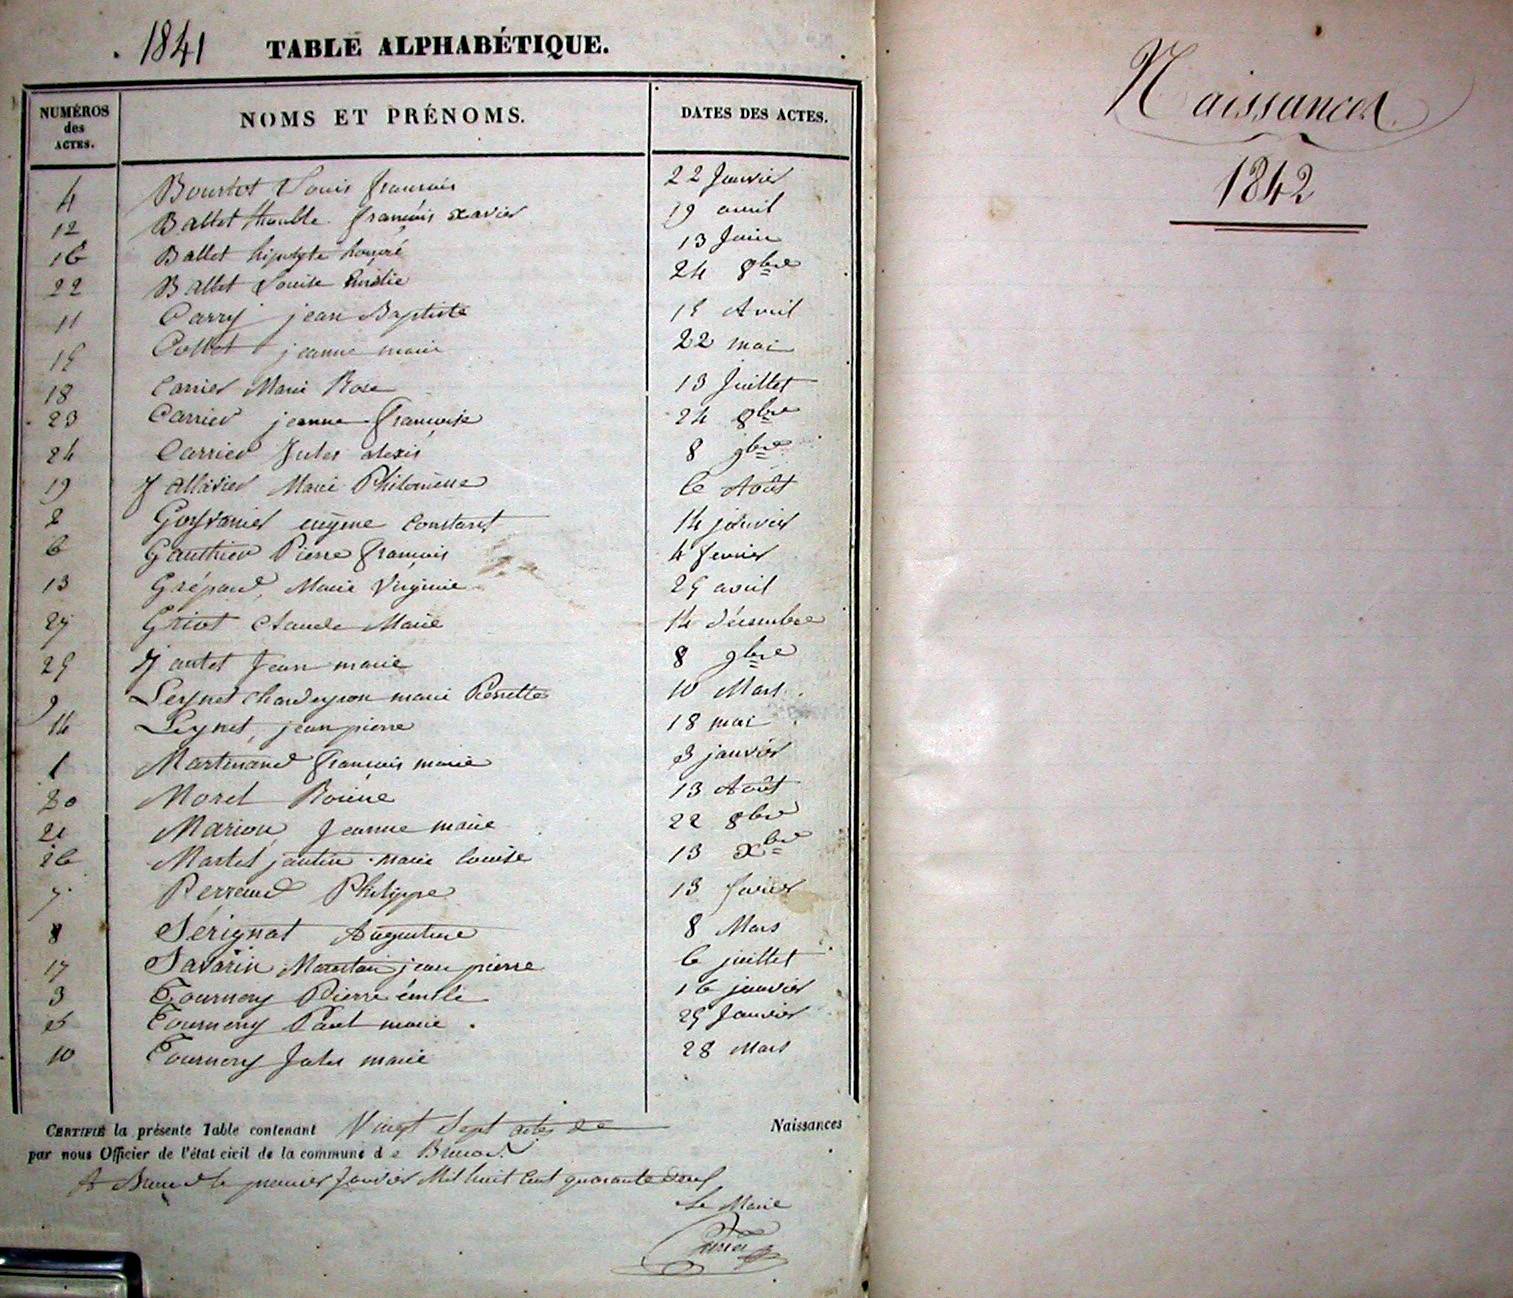 1841 TABLE ALPHABÉTIQUE.
NUMÉROS des ACTES. NOMS ET PRÉNOMS. DATES DES ACTES.
4 Louis françois 22 Janvier
12 Ballet françois xavier 19 avril
16 Ballet hipolyte honoré 13 Juin
22 Ballet Louise 24 8bre
11 Carry jean Baptiste 15 Avril
15 Collet jeanne marie 22 mai
18 Carrier Marie Rose 13 Juillet
23 Carrier jeanne françoise 24 8bre
24 Carrier Jules alexis 8 9bre
19 Marie Philomène 6 Août
2 eugene constant 14 janvier
6 Gauthier Pierre françois 4 fevrier
13 Marie Virginie 25 avril
27 Griot Claude Marie 14 décembre
25 Jantet Jean marie 8 9bre
9 Leynet marie Pierrette 10 Mars
14 Leynet, jean pierre 18 mai
1 Martinand françois marie 3 janvier
20 Morel 13 Août
21 Marion Jeanne marie 22 8bre
26 Martel jantin marie louise 13 xbre
7 Perraud Philippe 13 fevrier
8 Sérignat Augustine 8 Mars
17 Savarin jean pierre 6 juillet
3 Tournery Pierre émile 16 janvier
5 Tournery Paul marie 25 Janvier
10 Tournery Jules marie 28 Mars
CERTIFIÉ la présente Table contenant Vingt Sept actes de Naissances
par nous Officier de l'état civil de la commune de
A le premier Janvier Mil huit Cent quarante deux
Le Maire
Carrier
Naissances
1842